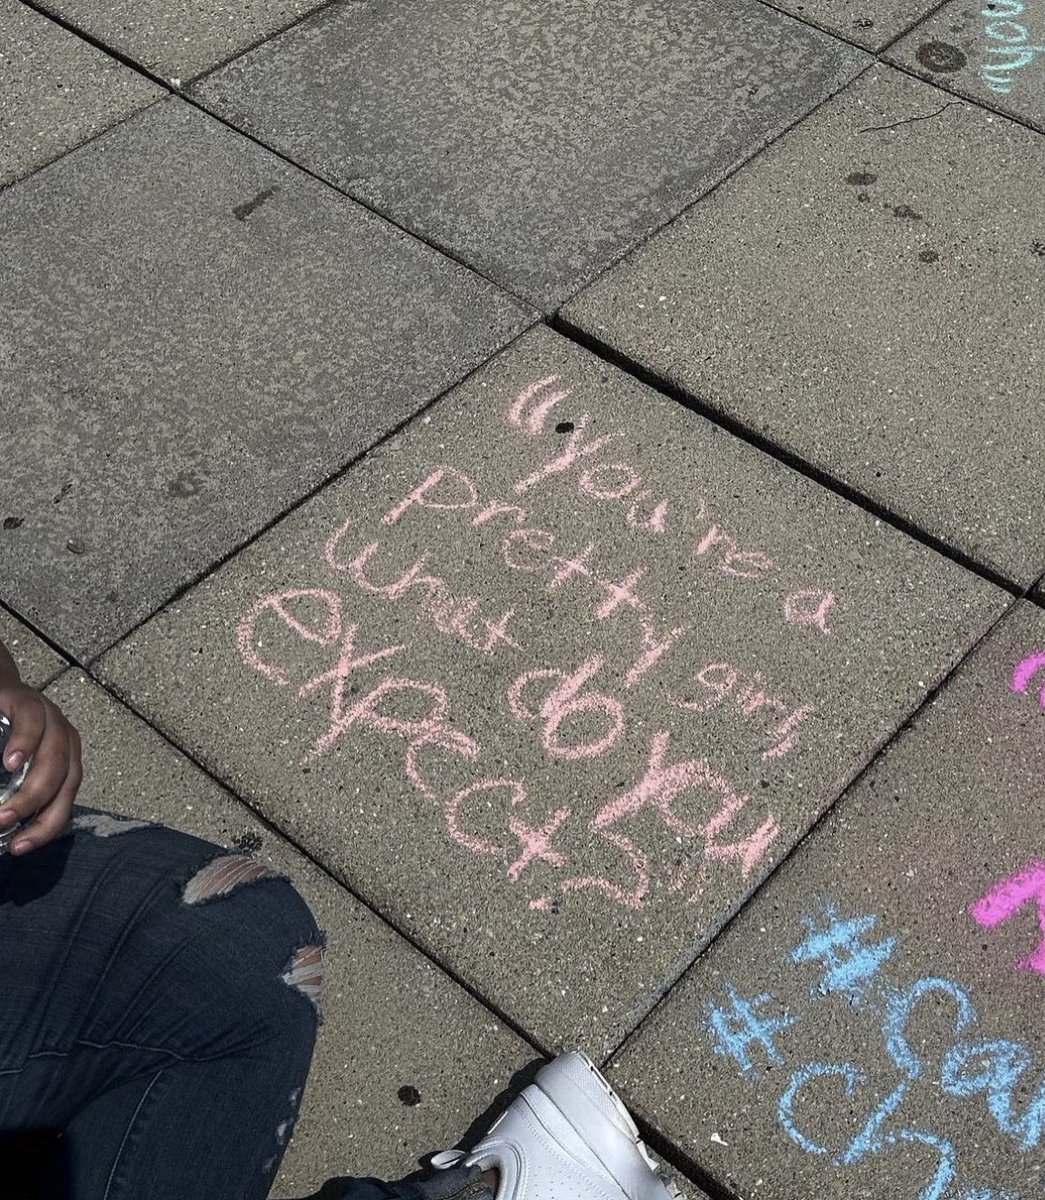 "You're a
Pretty girl
what do you
expect?"
you
#
#Ca